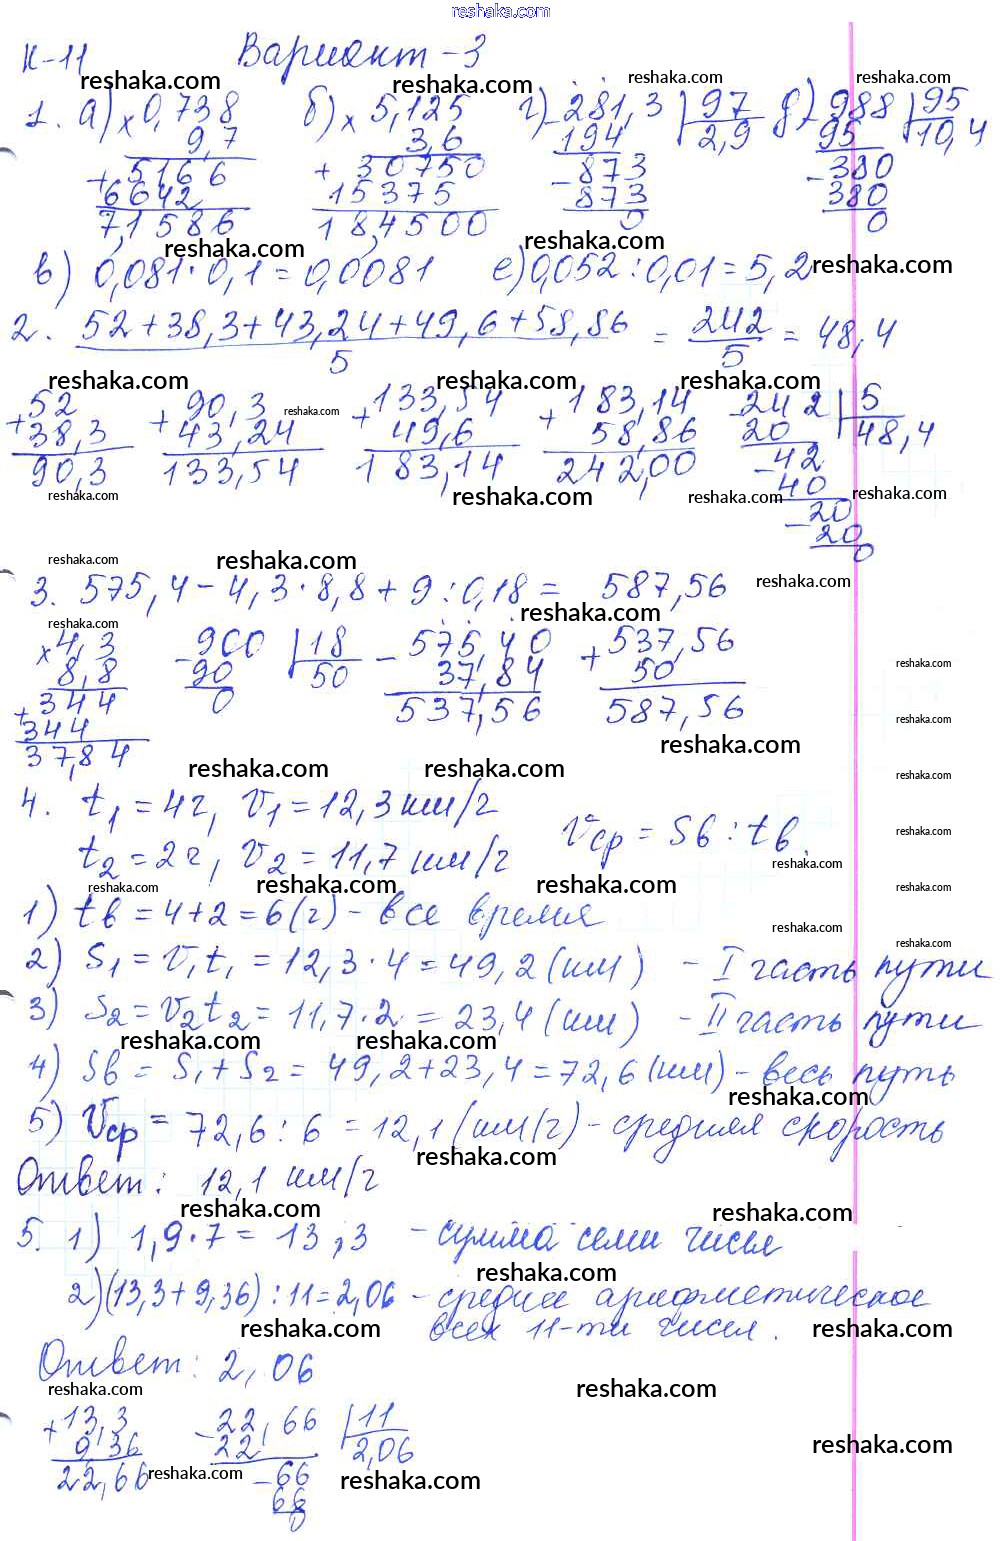 reshaka.com
К-11 Вариант-3
1. а) × 0,738 б) × 5,125 г) - 281,3 | 97 д) - 988 | 95
9,7 3,6 194 2,9 95 10,4
+ 5166 + 30750 - 873 - 380
6642 15375 873 380
7,1586 18,4500 0 0
в) 0,081·0,1=0,0081 е) 0,052:0,01=5,2
2. 52+38,3+43,24+49,6+58,86 = 242 = 48,4
5 5
+ 52 + 90,3 + 133,54 + 183,14 - 242 | 5
38,3 43,24 49,6 58,86 20 48,4
90,3 133,54 183,14 242,00 - 42
40
- 20
20
0
3. 575,4-4,3·8,8+9:0,18= 587,56
× 4,3 - 900 | 18 - 575,40 + 537,56
8,8 90 50 37,84 50
+ 344 0 537,56 587,56
344
37,84
4. t₁=4ч, V₁=12,3км/ч
t₂=2ч, V₂=11,7км/ч Vср=Sв:tв.
1) tв=4+2=6(ч)-все время
2) S₁=V₁t₁=12,3·4=49,2(км) - I часть пути
3) S₂=V₂t₂=11,7·2=23,4(км) - II часть пути
4) Sв=S₁+S₂=49,2+23,4=72,6(км)-весь путь
5) Vср=72,6:6=12,1(км/ч)-средняя скорость
Ответ: 12,1 км/ч
5. 1) 1,9·7=13,3 - сумма семи чисел
2)(13,3+9,36):11=2,06-среднее арифметическое
всех 11-ти чисел.
Ответ: 2,06
+ 13,3 - 22,66 | 11
9,36 22 2,06
22,66 - 66
66
0